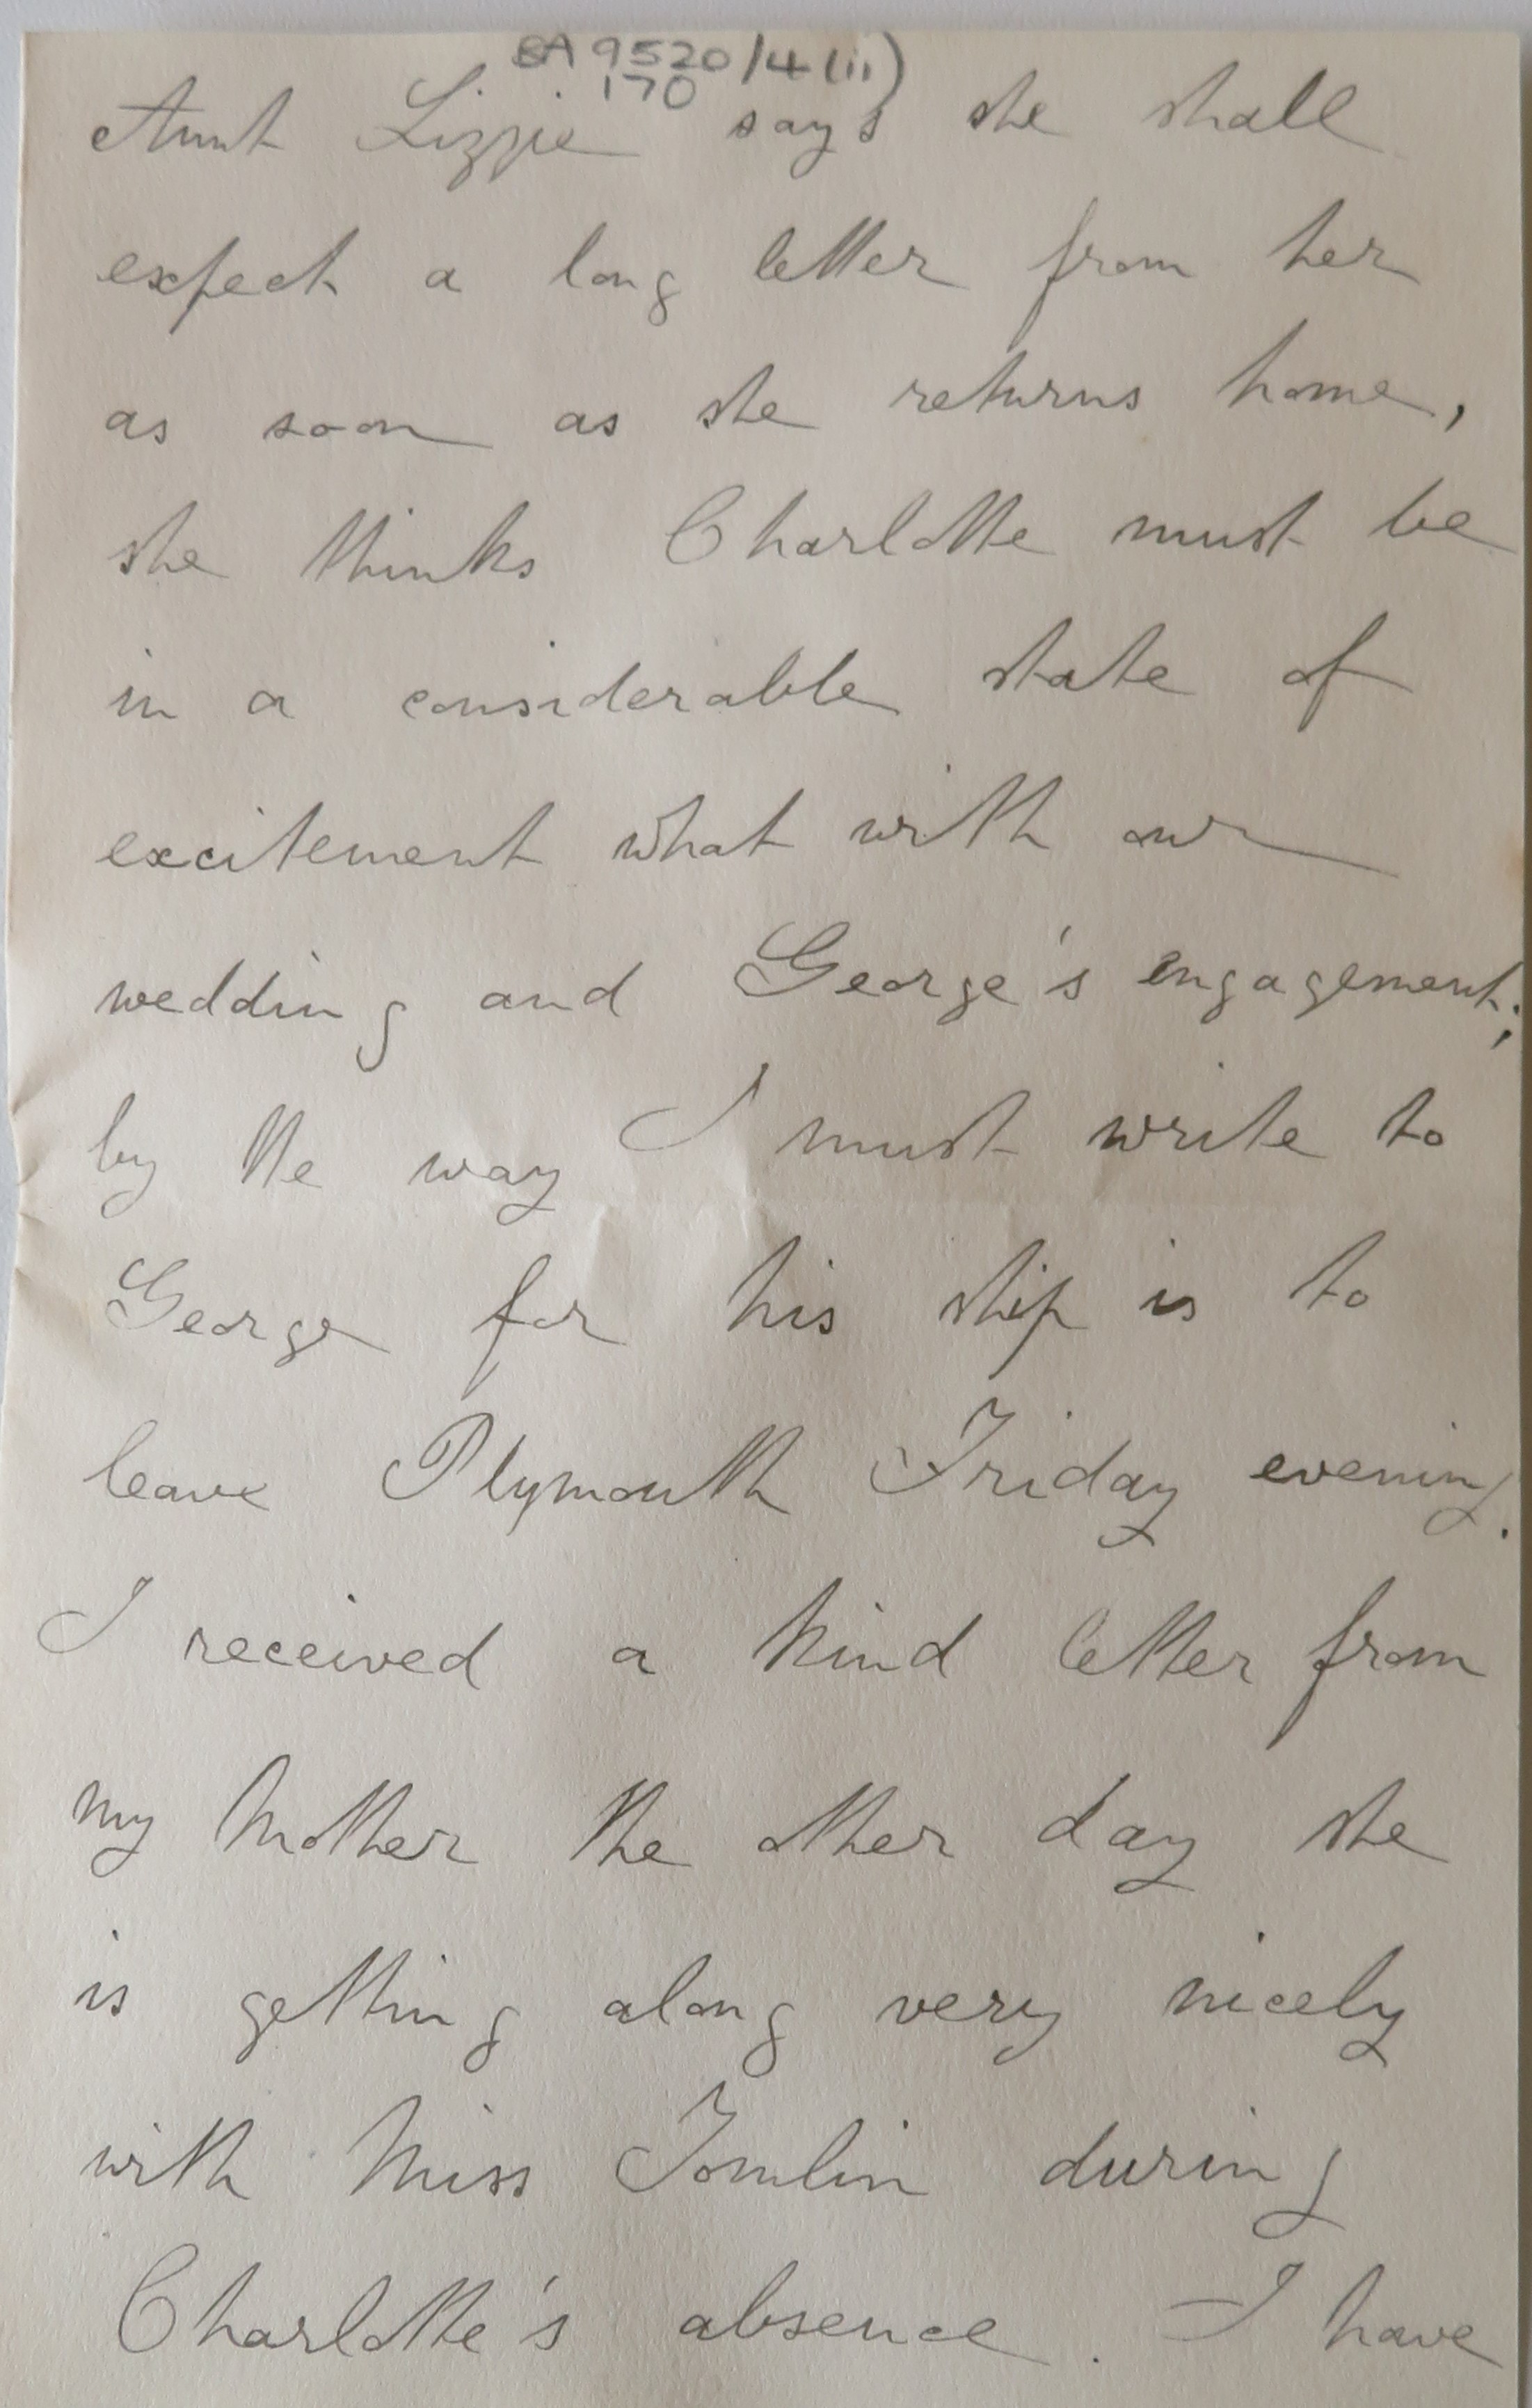 BA 9520/4(ii)
170
Aunt Lizzie says she shall
expect a long letter from her
as soon as she returns home,
she thinks Charlotte must be
in a considerable state of
excitement what with our
wedding and George's engagement;
by the way I must write to
George for his ship is to
leave Plymouth Friday evening.
I received a kind letter from
my Mother the other day she
is getting along very nicely
with Miss Tomlin during
Charlotte's absence. I have